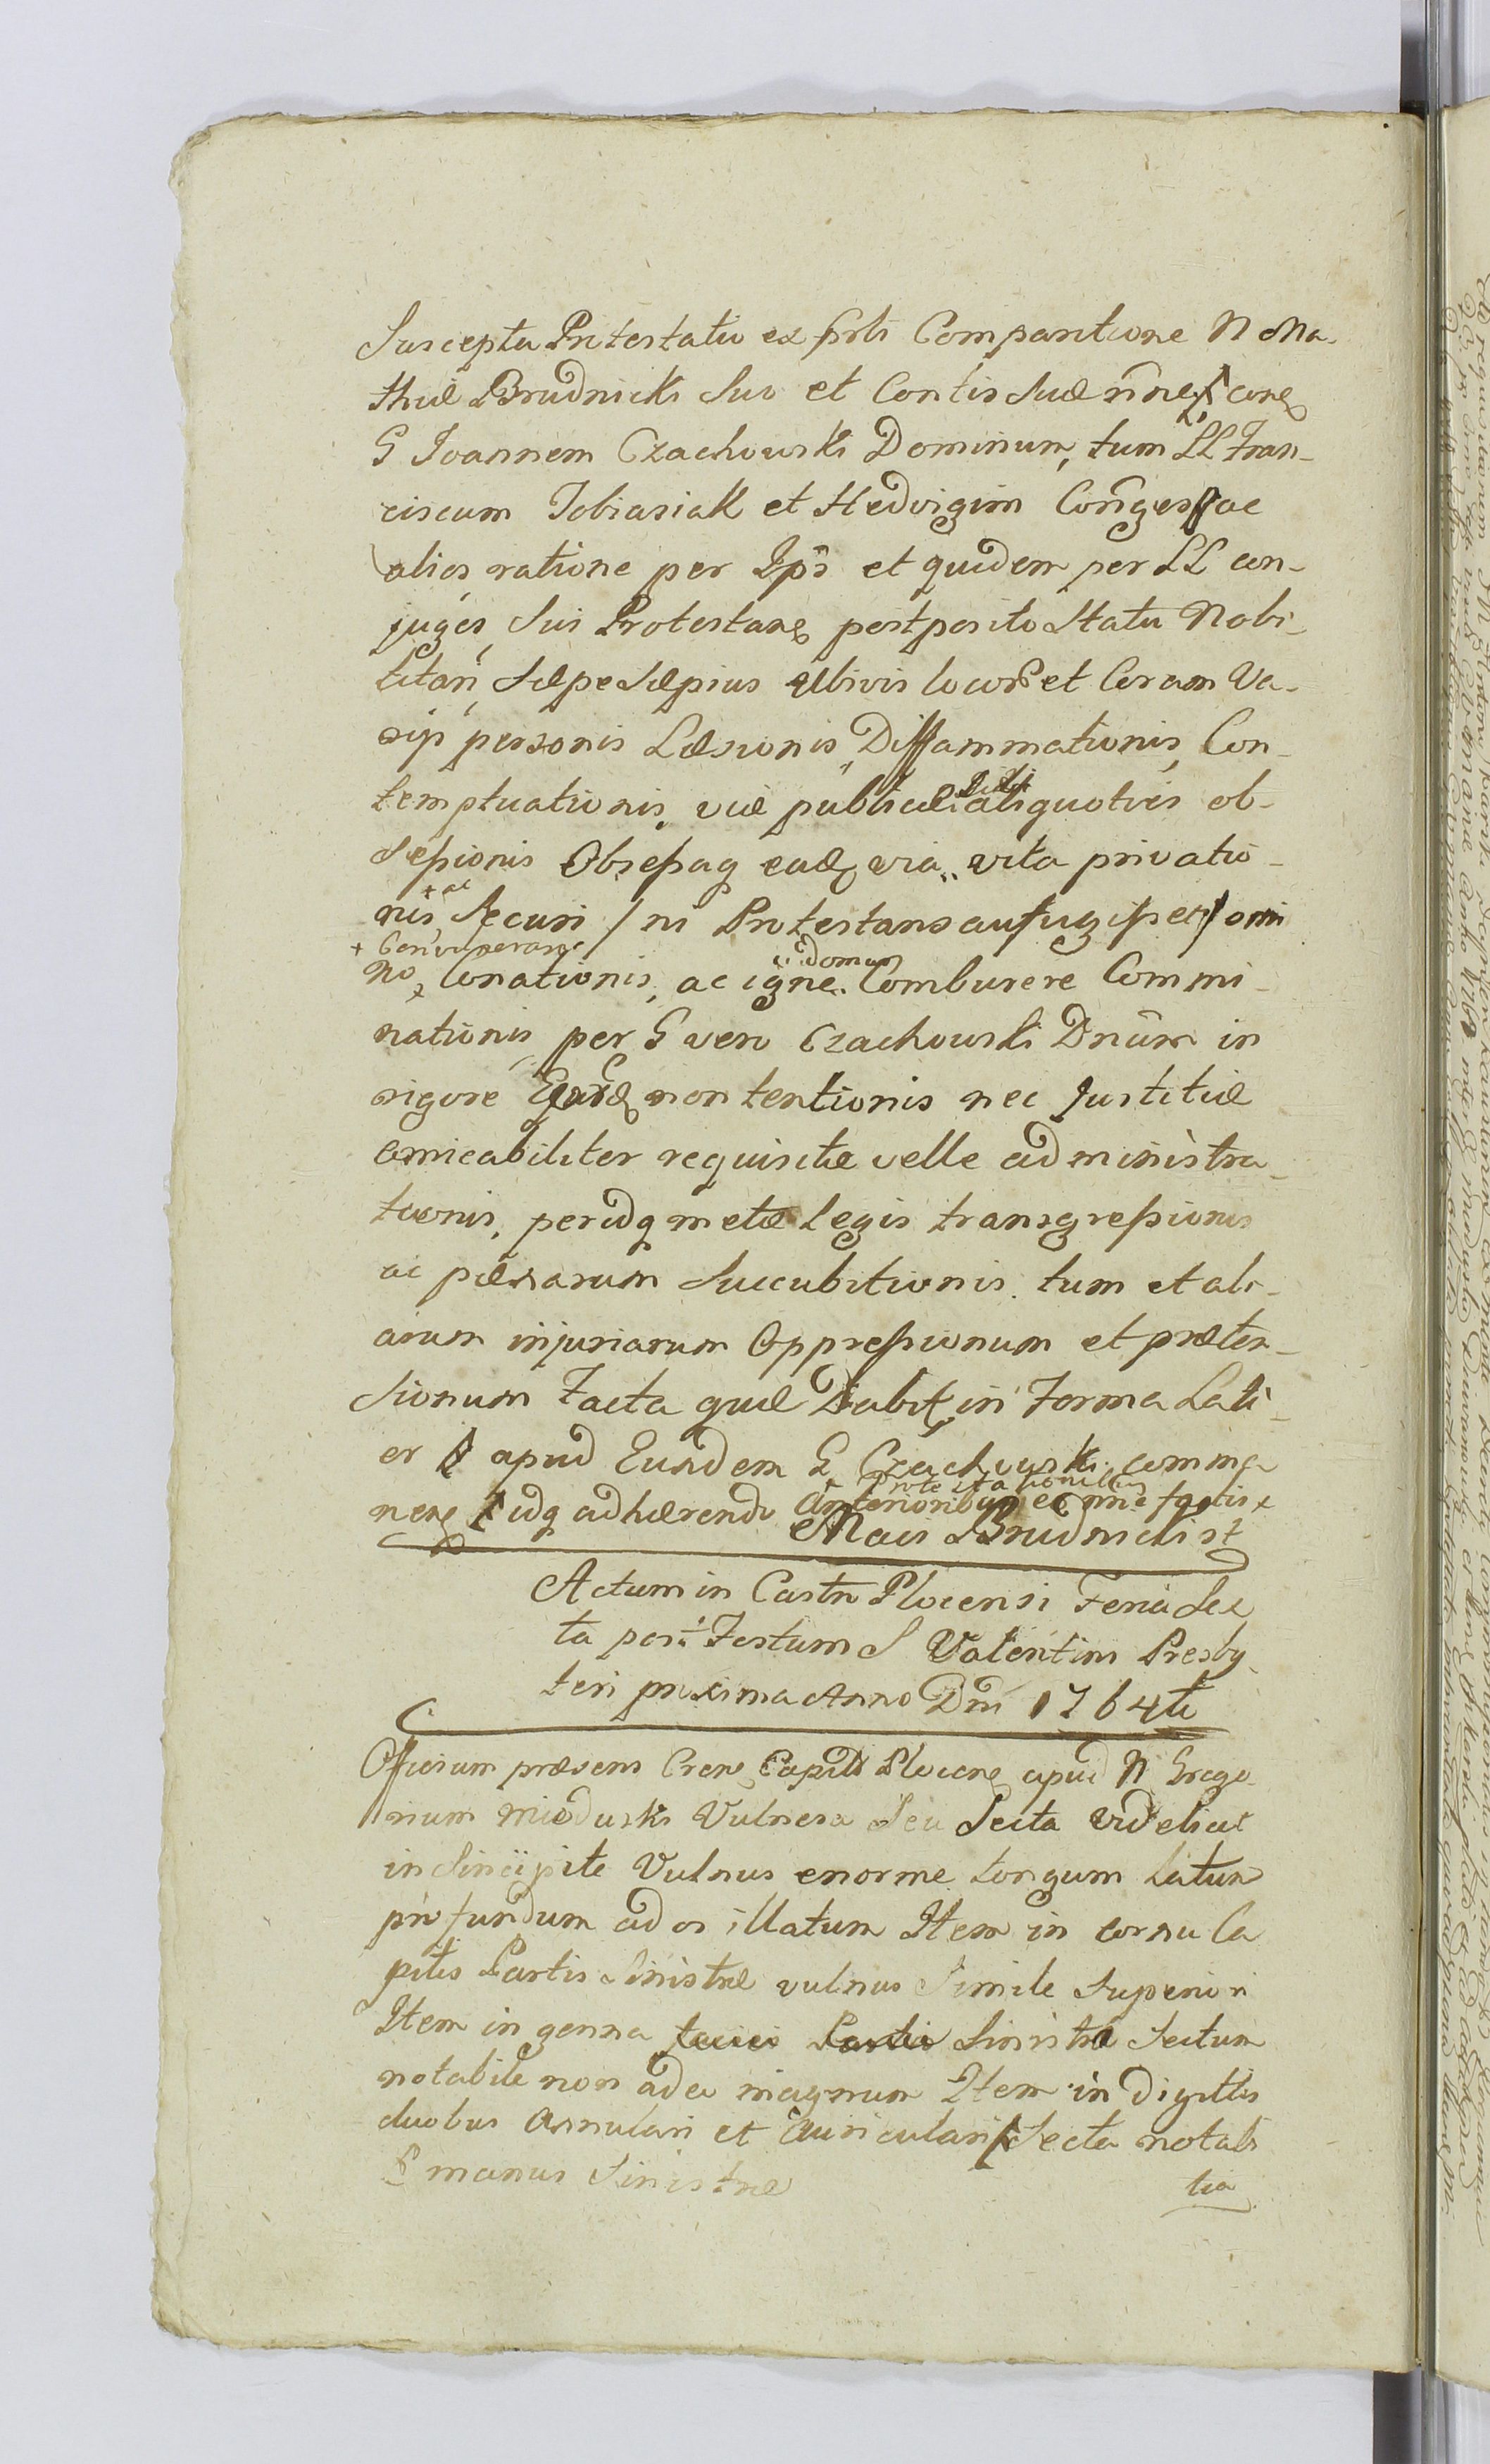 Suscepta Protestatio ex prti Comparitione N Ma-
thiæ Brudnicki Suo et Contis Suæ nne
G Joannem Czachowski Dominum, tum LL Fran-
ciscum Tobiasiak et Hedvigim Conges ac
alios ratione per Ips et quidem per LL con-
juges, Sui Protestan postposito Statu Nobi-
litari, Sæpe Sæpius Ubivis locor et Coram Va-
rijs personis Læsionis, Diffammationis, Con-
temptuationis, viæ publicæ aliquoties ob-
sessionis Obsessaq eadq via, vita privatio-
+ ac
nis, Securi / ni Protestans aufugisset / omi
+
no, Conationis, ac igne Comburere Commi-
domum
nationis per G vero Czachowski Dnum in
rigore non tentionis nec Justitiæ
amicabiliter requisitæ velle administra-
tionis, peridq metæ Legis transgressionis
ac pænarum Succubitionis, tum et ali-
arum injuriarum Oppressionum et præten-
sionum Facta quæ Dabit in Forma Lati-
or apud Eundem G Czachowski comma
nen idq adhærendo Anterioribus
Protestationibus
Maci Brudnicki
Actum in Castro Plocensi Feria Sex
ta post Festum S Valentini Presby
teri proxima Anno Dni 1764to
Officium præsens Cren Capitl Plocen apud N Grego-
rium Mioduski Vulnera Seu Secta videlicet
in Sincipite Vulnus enorme longum latum
profundum ad os illatum Item in cornu Ca
pitis Partis Sinistræ vulnus Simile Superiori
Item in genna faciei Partis Sinistræ Sectum
notabile non adeo magnum Item in digitis
duobus Annulari et Auriculari Secta notabi
manus Sinistræ
lia